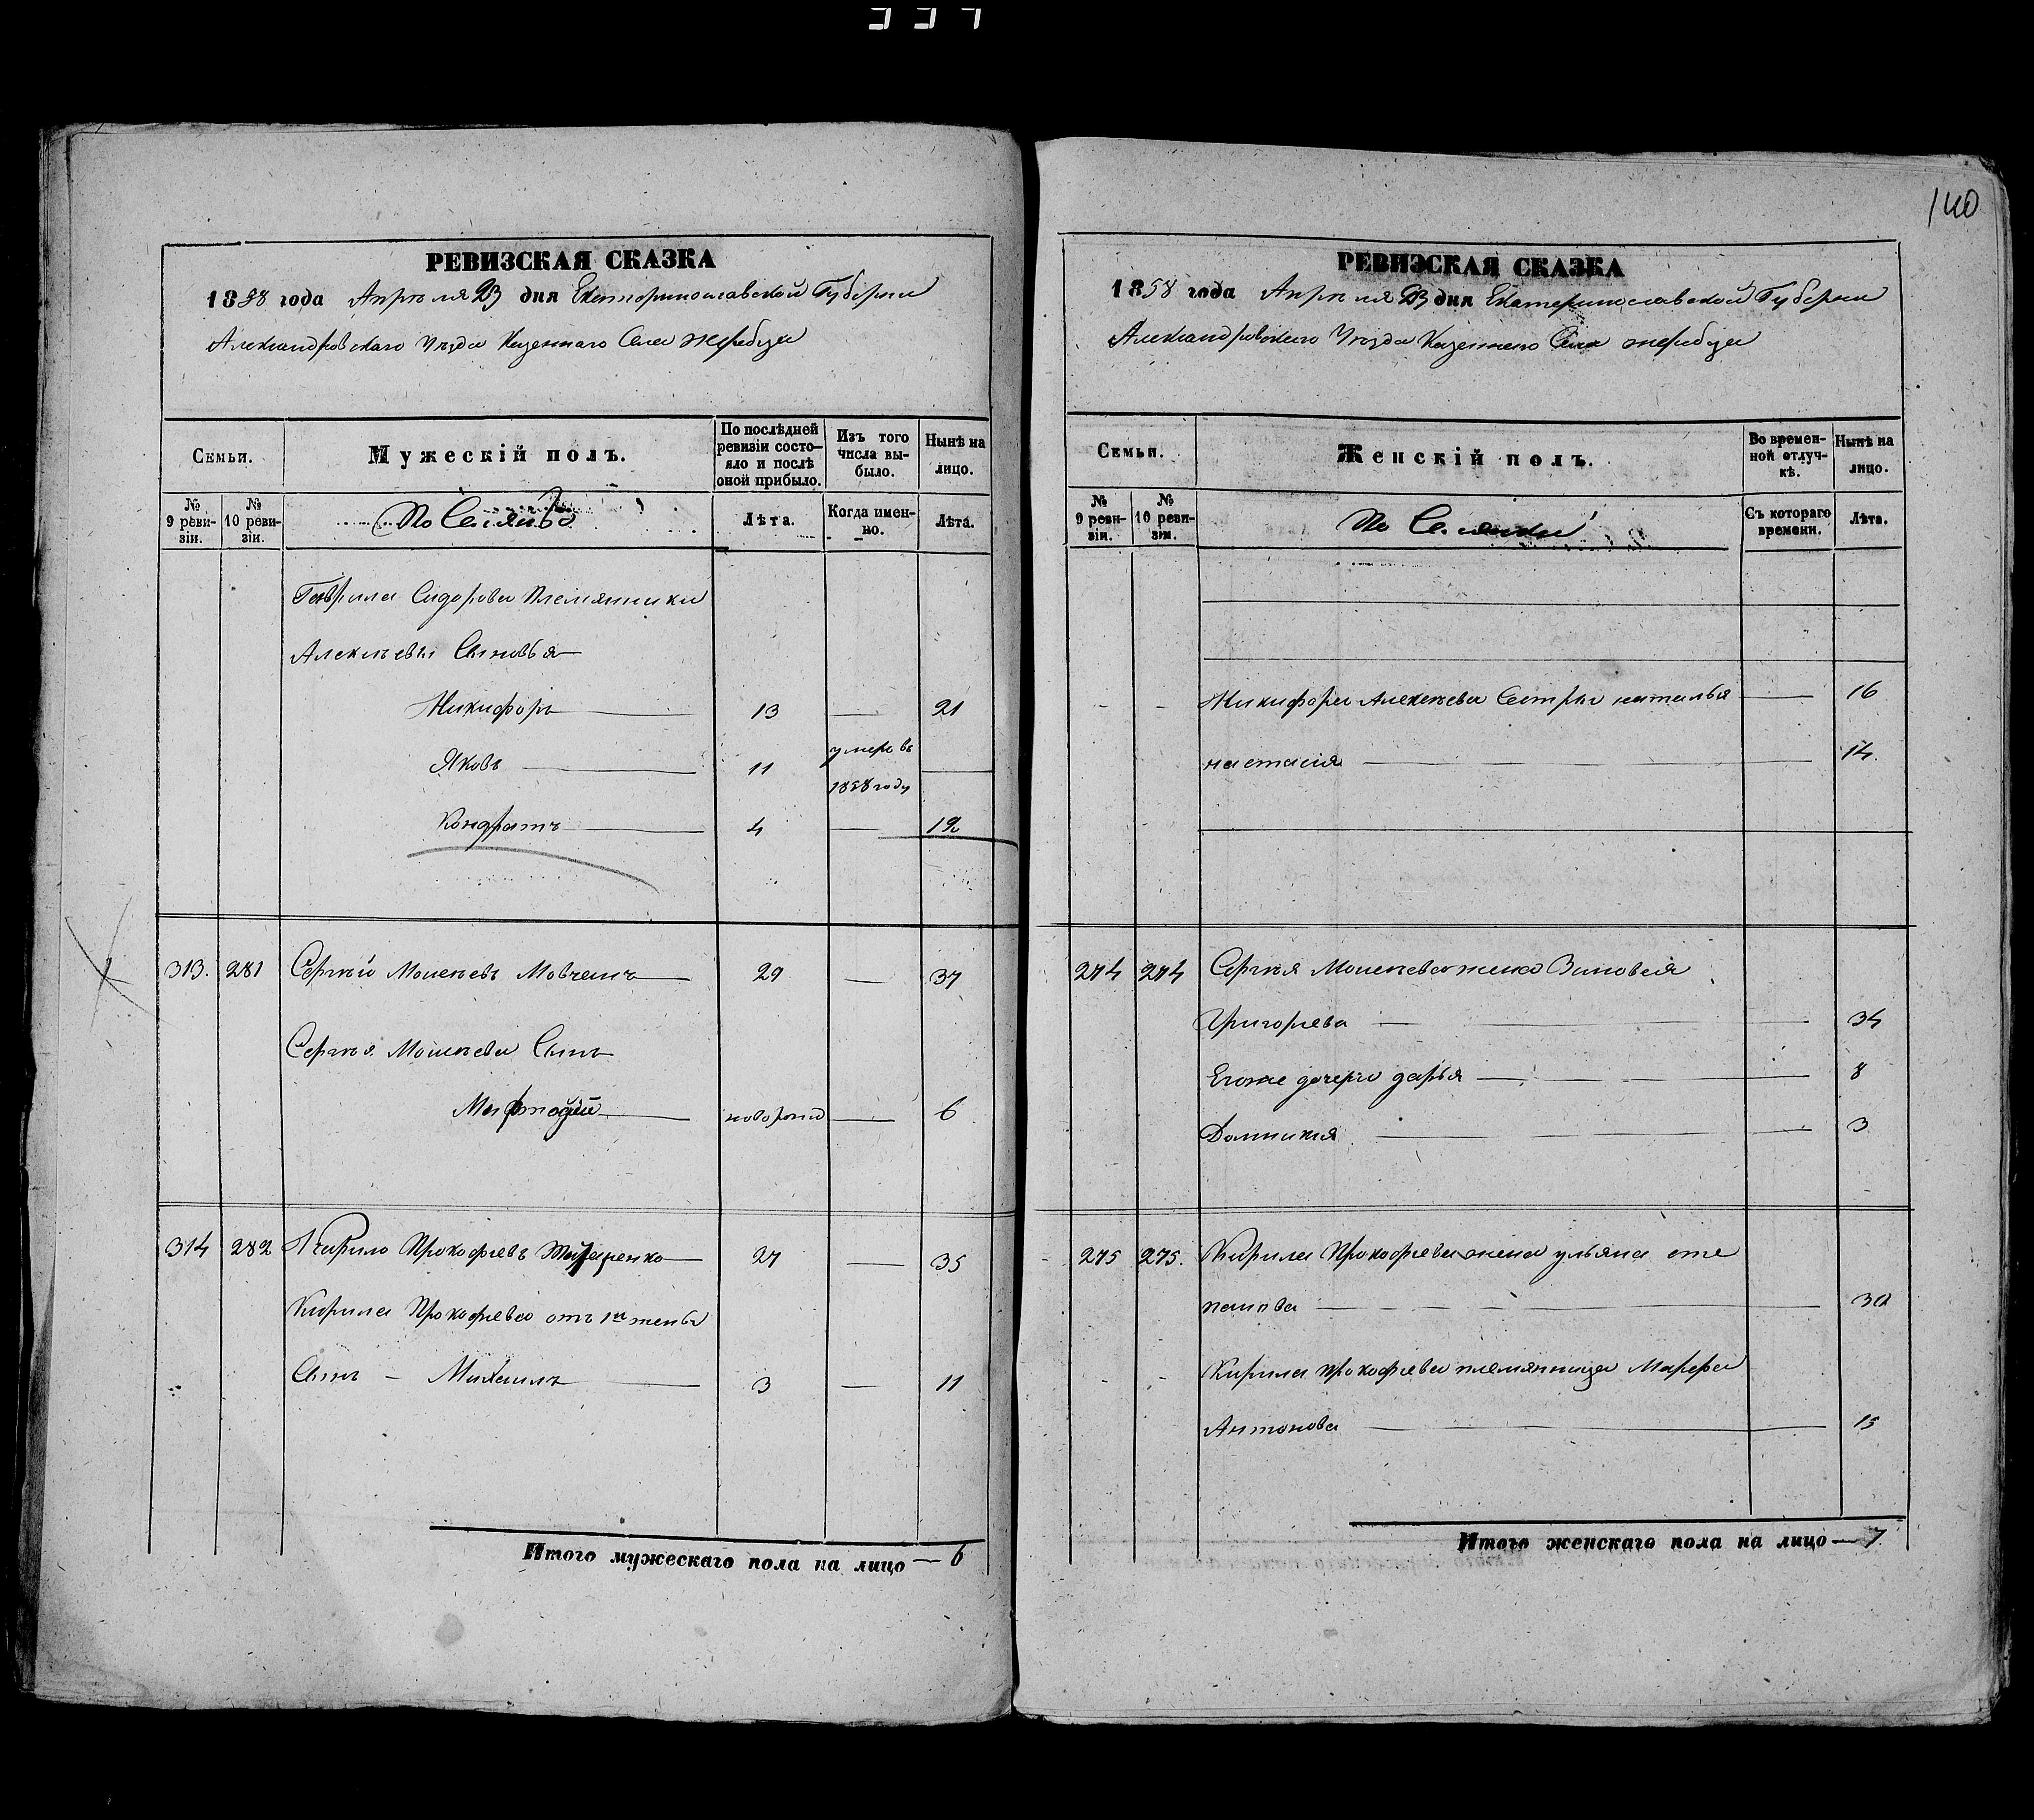 140
РЕВИЗСКАЯ СКАЗКА
1858 года Апреля 23 дня Екатеринославской Губернии
Александровского Уезда Казенного Села Жеребца
Семьи.
Мужескій полъ.
По послѣдней ревизіи состояло и послѣ оной прибыло.
Изъ того числа выбыло.
Нынѣ на лицо.
№ 9 ревизіи.
№ 10 ревизіи.
Поселяне
Лѣта.
Когда именно.
Лѣта.
Гаврила Сидорова Племянники
Алексѣевы Сыновья
Никифоръ 13 — 21
Яковъ 11 умеръ въ 1858 году
Кондратъ 4 — 12
313. 281 Сергѣй Моисѣевъ Мовчанъ 29 — 37
Сергѣя Моисѣева Сынъ
Мефтодій новорож — 6
314 282 Кирило Прокофіевъ 27 — 35
Кирила Прокофіева отъ 1й жены
Сынъ — Михаилъ 3 — 11
Итого мужескаго пола на лицо — 6
РЕВИЗСКАЯ СКАЗКА
1858 года Апреля 23 дня Екатеринославской Губернии
Александровского Уезда Казенного Села Жеребца
Семьи.
Женскій полъ.
Во временной отлучкѣ.
Нынѣ на лицо.
№ 9 ревизіи.
№ 10 ревизіи.
Поселянки
Съ котораго времени.
Лѣта.
Никифора Алексѣева Сестры наталья — 16
настасия 14.
274 274 Сергѣя Моисѣева жена Зиновея
Григорьева — 34
Егоже дочери дарья — 8
Домникия — 3
275 275. Кирила Прокофіева жена ульяна сте
панова — 30
Кирила Прокофіева племянница Марфа
Антонова — 15
Итого женскаго пола на лицо — 7